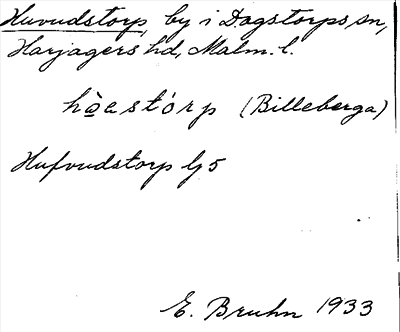 Huvudstorp, by i Dagstorps sn,
Harjagers hd, Malm. l.
(Billeberga)
Hufvudstorp
E. Bruhn 1933